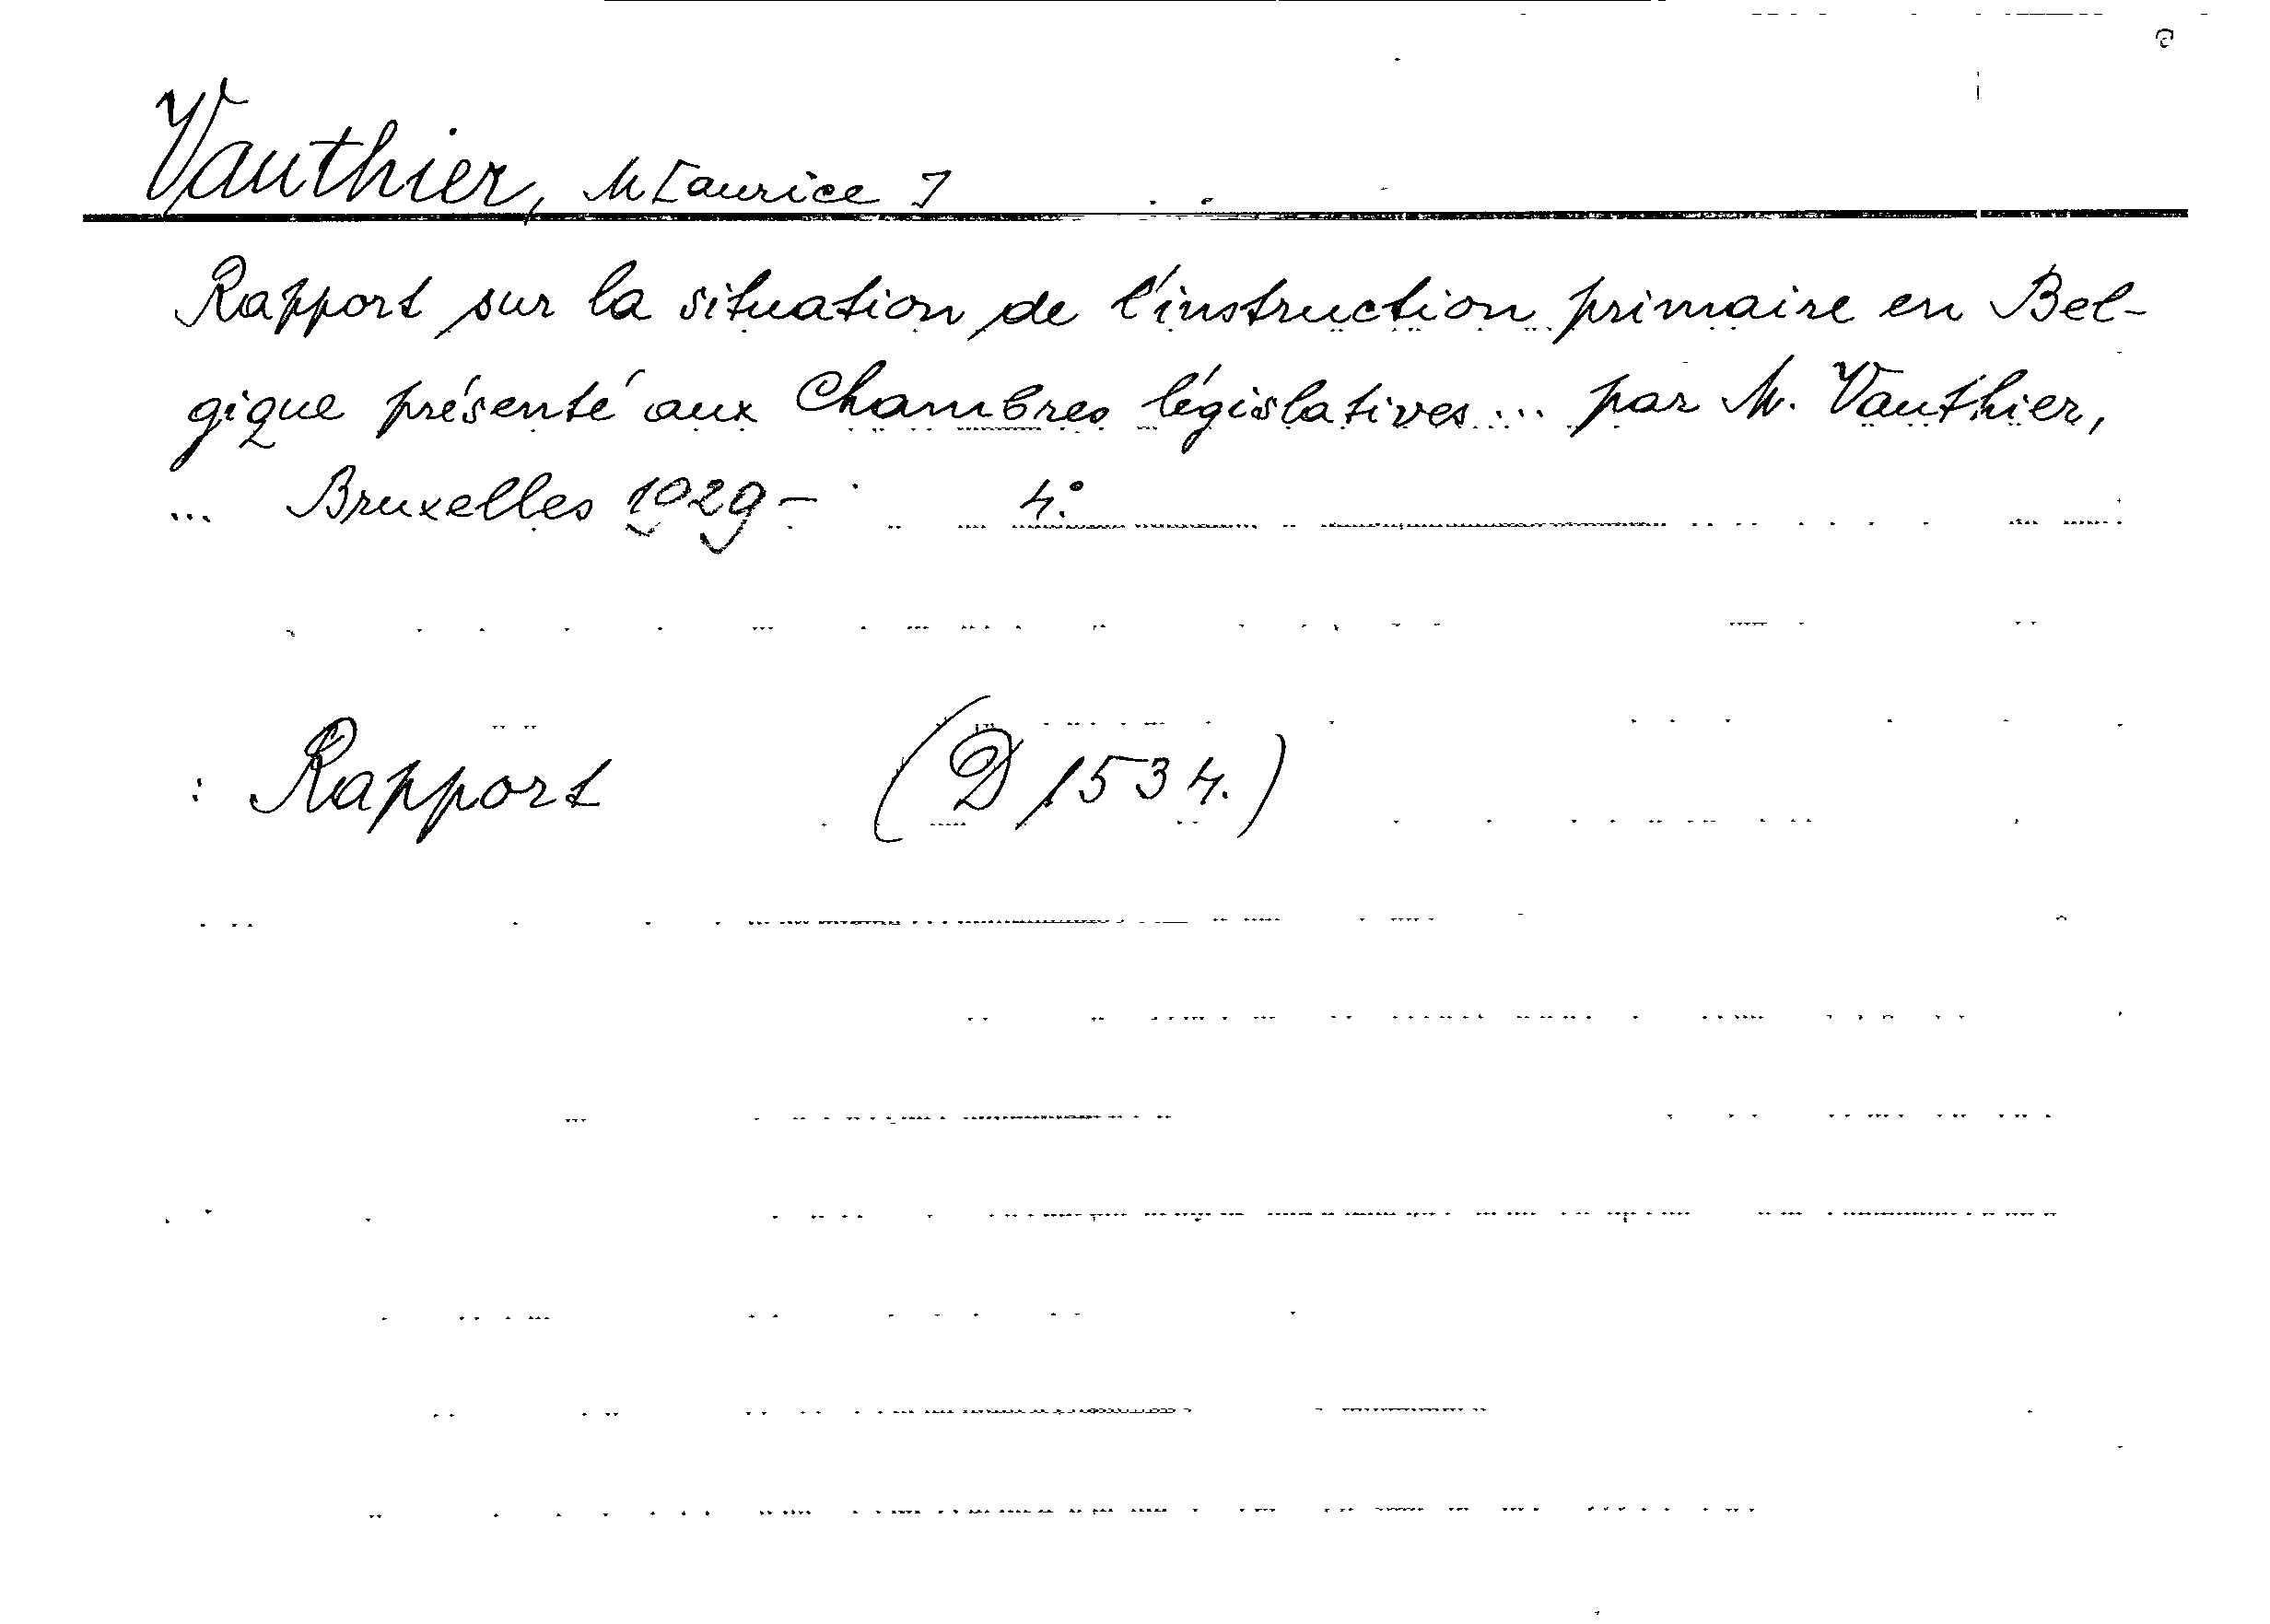 Vauthier, M[aurice]
Rapport sur la situation de l'instruction primaire en Bel-
gique présenté aux Chambres législatives... par M. Vauthier,
... Bruxelles 1929- 4°.
: Rapport (D 1534.)